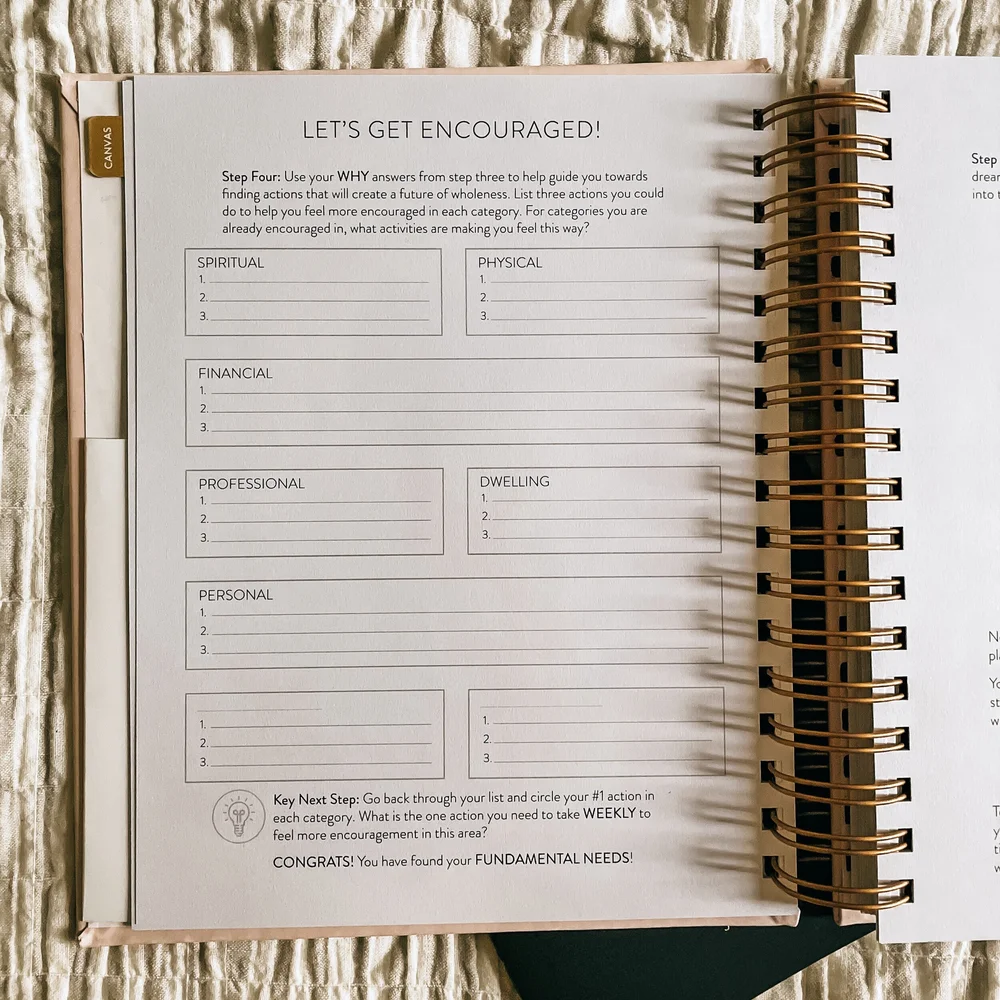 CANVAS
LET'S GET ENCOURAGED!
Step Four: Use your WHY answers from step three to help guide you towards
finding actions that will create a future of wholeness. List three actions you could
do to help you feel more encouraged in each category. For categories you are
already encouraged in, what activities are making you feel this way?
SPIRITUAL
1.
2.
3.
PHYSICAL
1.
2.
3.
FINANCIAL
1.
2.
3.
PROFESSIONAL
1.
2.
3.
DWELLING
1.
2.
3.
PERSONAL
1.
2.
3.
1.
2.
3.
1.
2.
3.
Key Next Step: Go back through your list and circle your #1 action in
each category. What is the one action you need to take WEEKLY to
feel more encouragement in this area?
CONGRATS! You have found your FUNDAMENTAL NEEDS!
Step
into